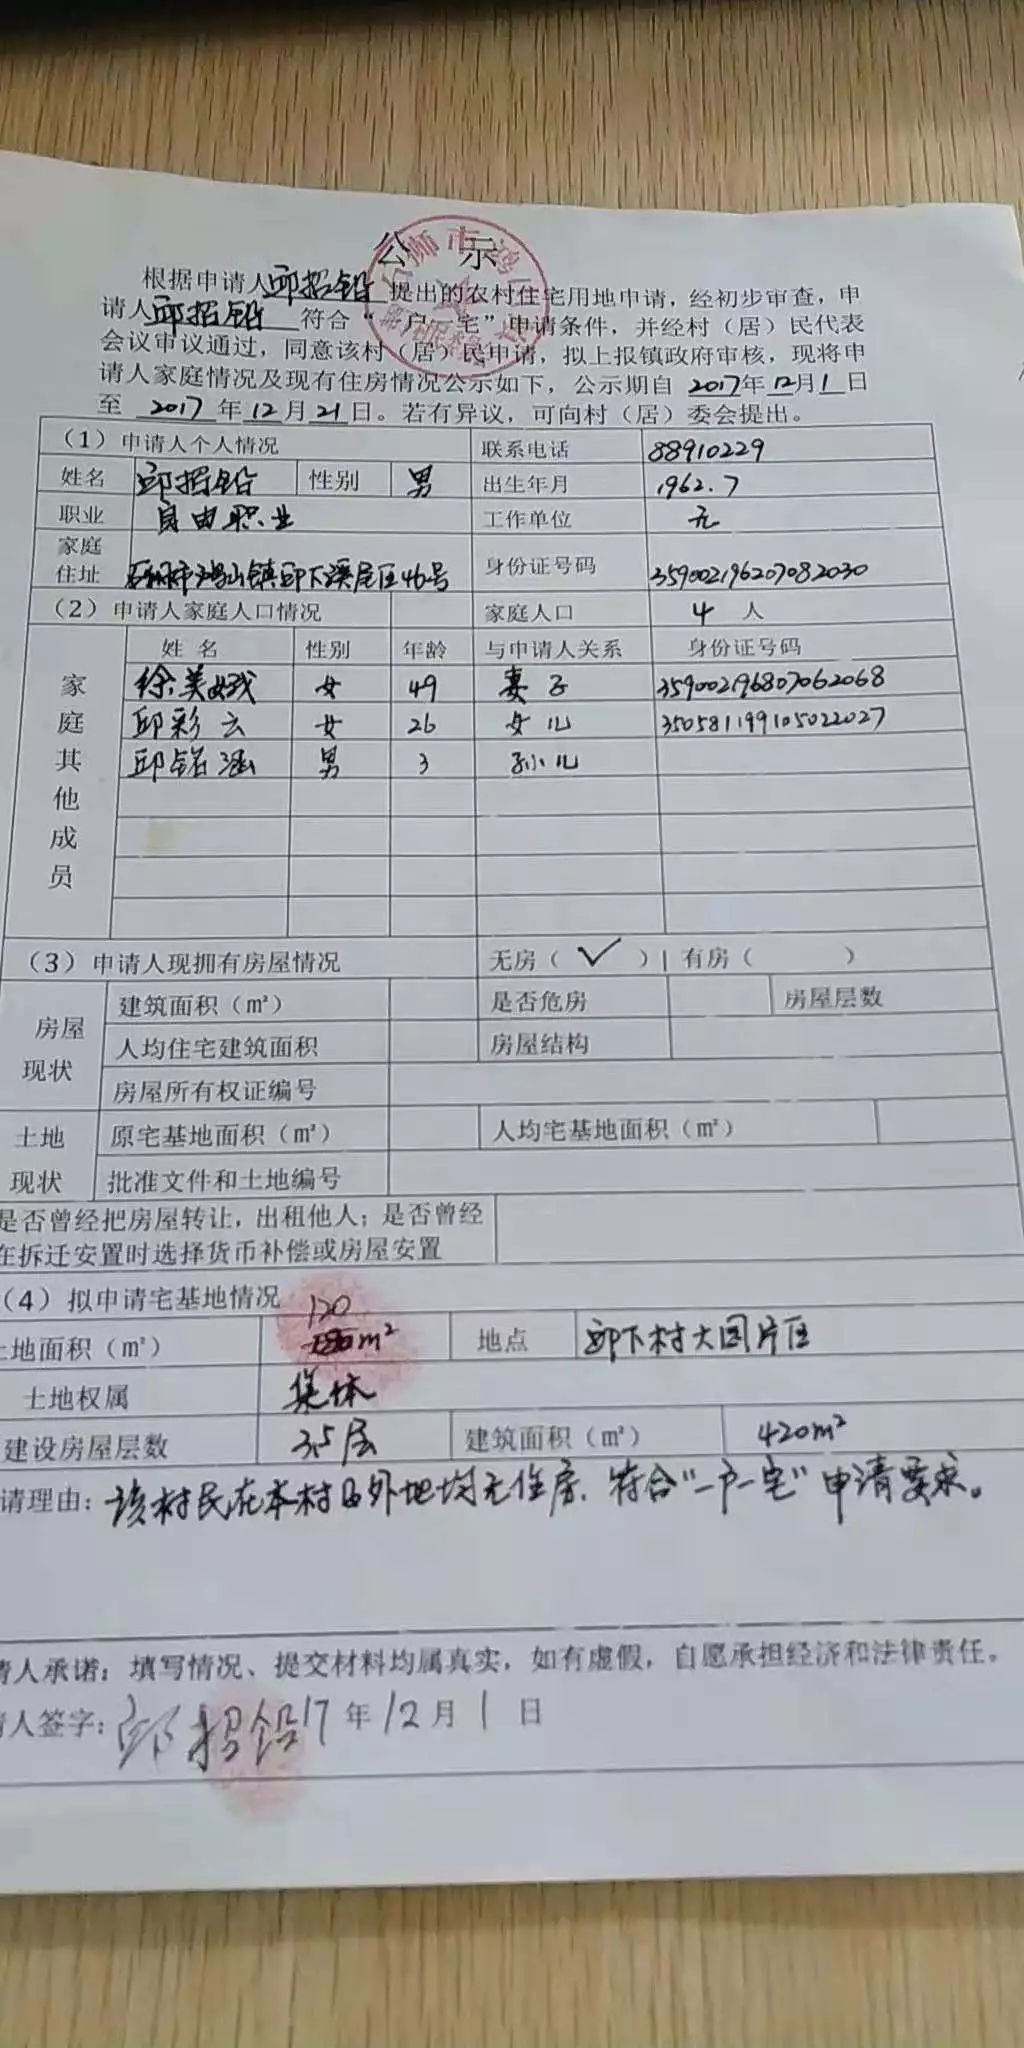 公 示
根据申请人邱招铅提出的农村住宅用地申请，经初步审查，申
请人邱招铅 符合“一户一宅”申请条件，并经村（居）民代表
会议审议通过，同意该村（居）民申请，拟上报镇政府审核，现将申
请人家庭情况及现有住房情况公示如下，公示期自 2017年12月1日
至 2017 年12月21日。若有异议，可向村（居）委会提出。
（1）申请人个人情况 联系电话 88910229
姓名 邱招铅 性别 男 出生年月 1962.7
职业 自由职业 工作单位 无
家庭住址 石狮市鸿山镇邱下溪尾区46号 身份证号码 359002196207082030
（2）申请人家庭人口情况 家庭人口 4 人
家庭其他成员 姓 名 性别 年龄 与申请人关系 身份证号码
徐美娥 女 49 妻子 359002196807062068
邱彩云 女 26 女儿 350581199105022027
邱铭涵 男 3 孙儿
（3）申请人现拥有房屋情况 无房（ ✓ ） 有房（ ）
房屋现状 建筑面积（㎡） 是否危房 房屋层数
人均住宅建筑面积 房屋结构
房屋所有权证编号
土地现状 原宅基地面积（㎡） 人均宅基地面积（㎡）
批准文件和土地编号
是否曾经把房屋转让，出租他人；是否曾经
在拆迁安置时选择货币补偿或房屋安置
（4）拟申请宅基地情况
土地面积（㎡） 120 m² 地点 邱下村大园片区
土地权属 集体
建设房屋层数 3.5层 建筑面积（㎡） 420m²
请理由：该村民在本村及外地均无住房，符合“一户一宅”申请要求。
请人承诺：填写情况、提交材料均属真实，如有虚假，自愿承担经济和法律责任。
请人签字：邱招铅 17年12月1日